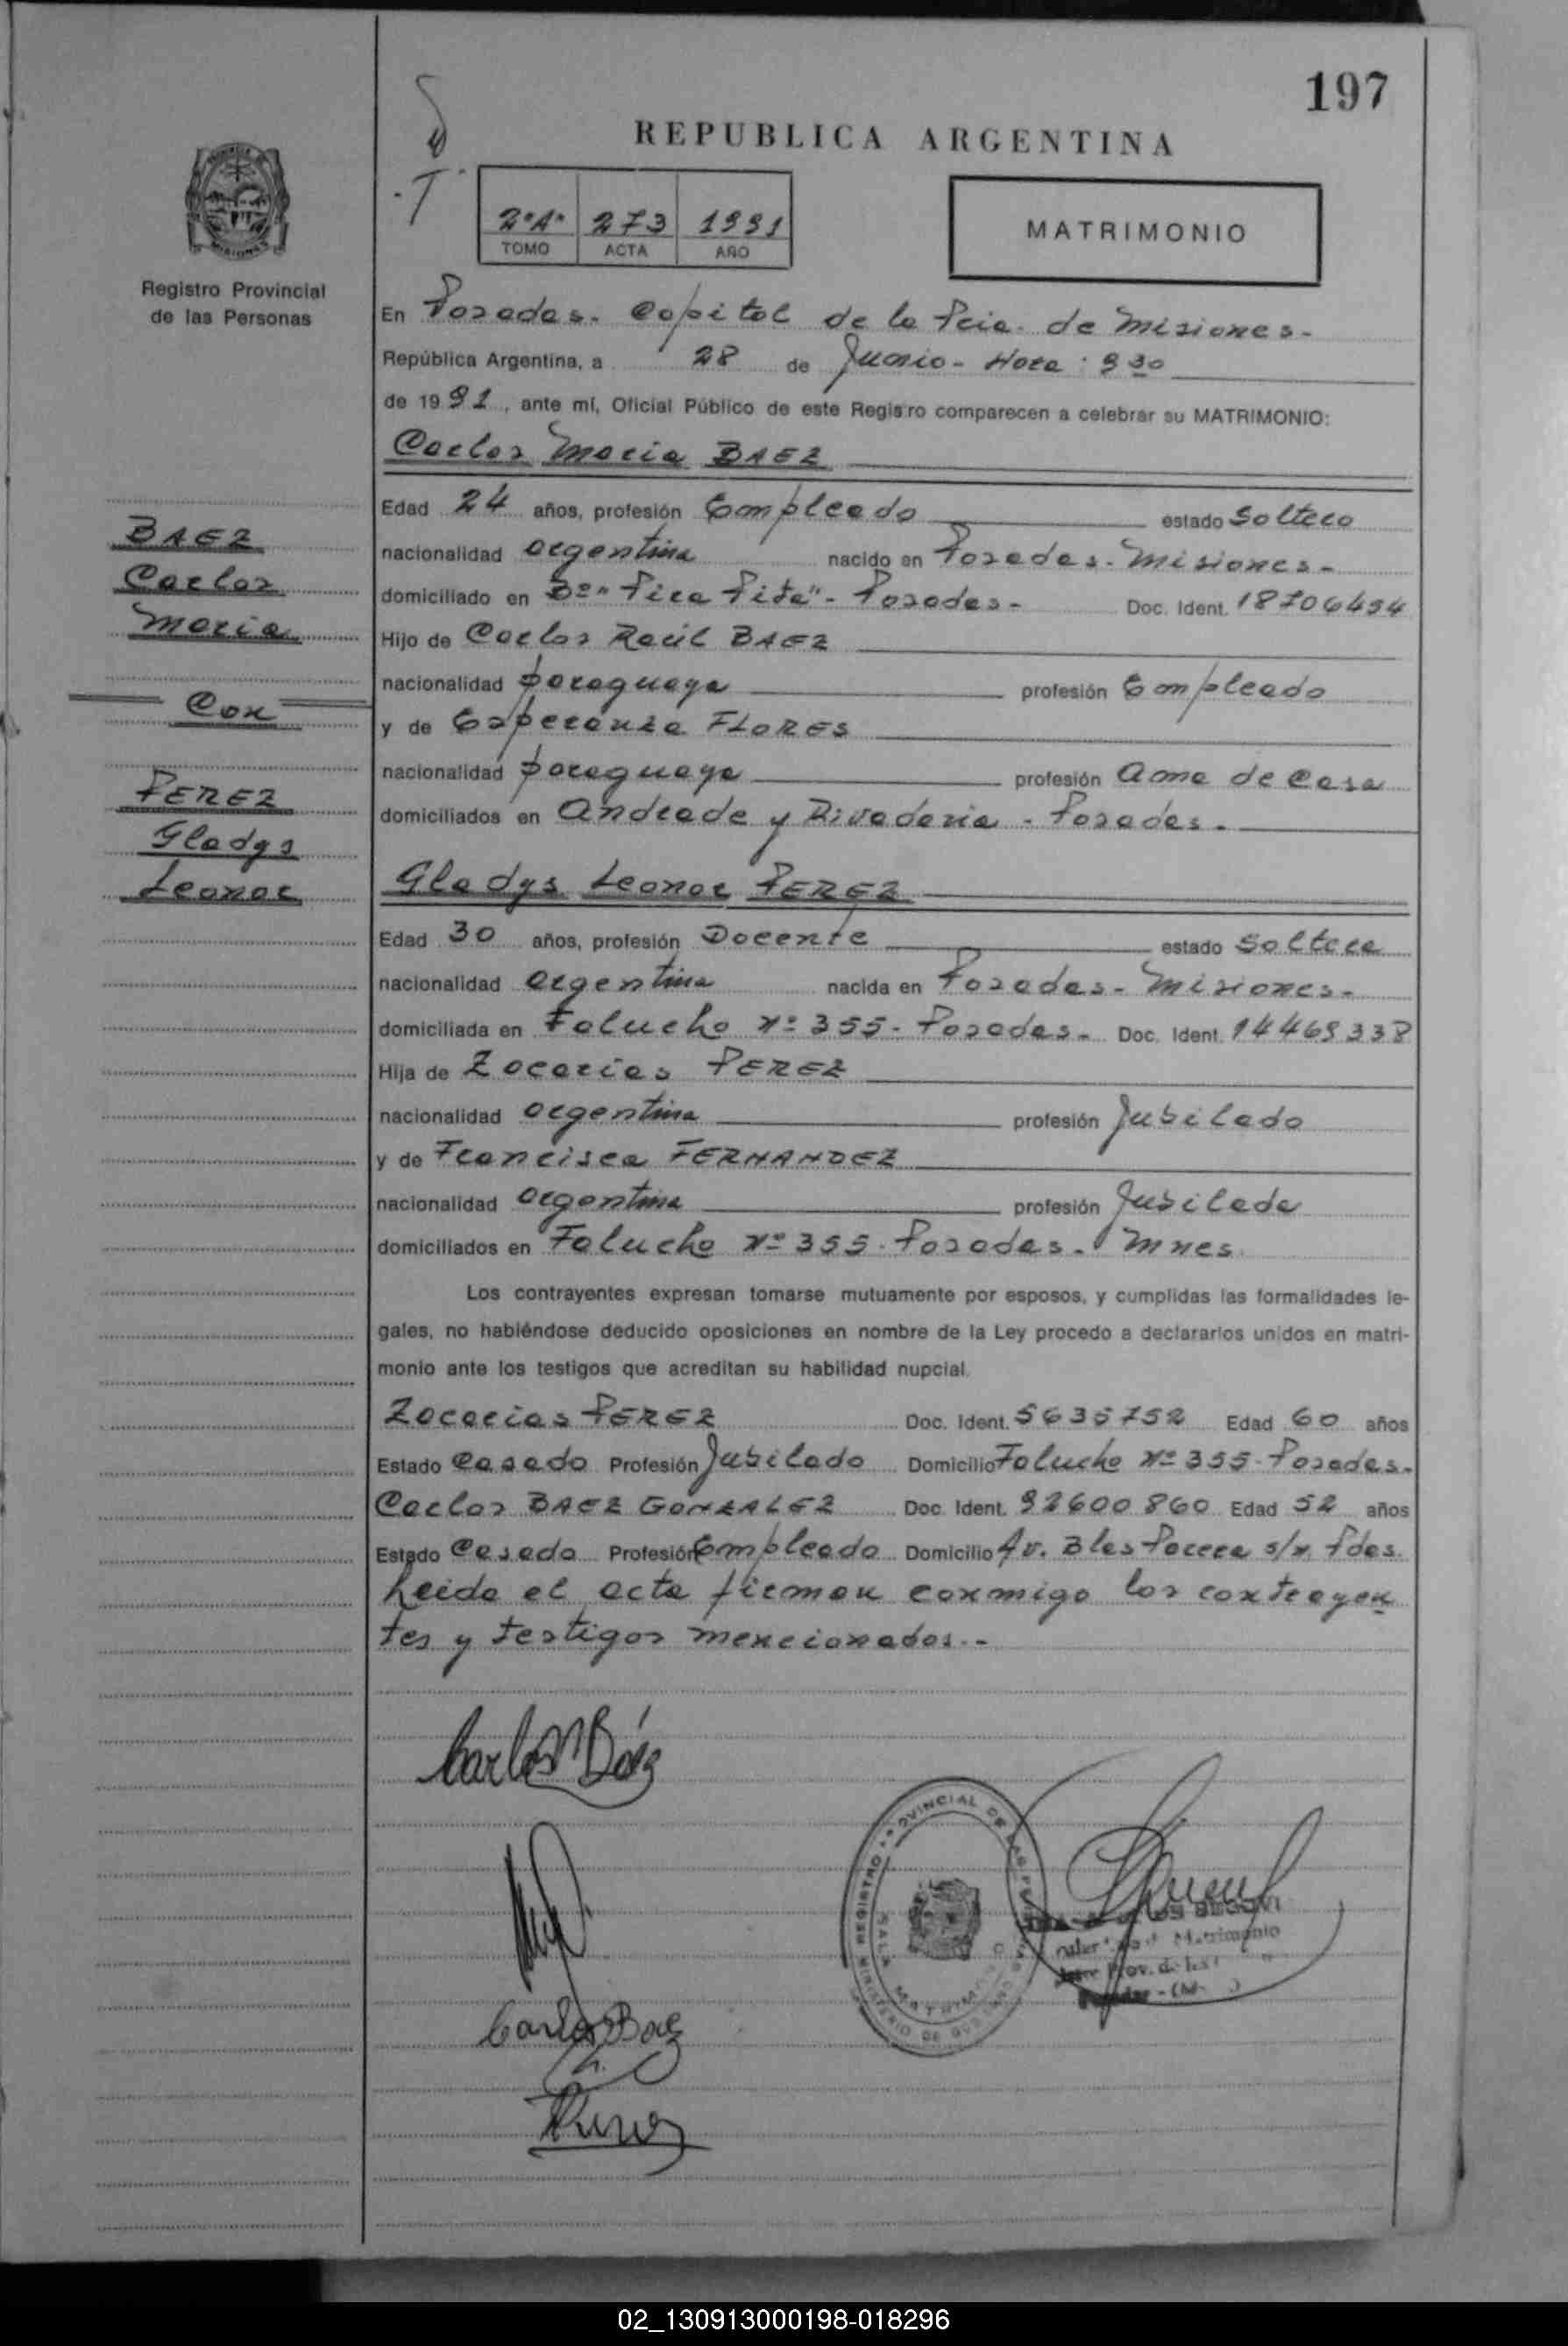 197
REPUBLICA ARGENTINA
2º"A" 273 1991
TOMO ACTA AÑO
MATRIMONIO
MISIONES
Registro Provincial
de las Personas
En Posadas. Capital de la Pcia. de Misiones.
República Argentina, a 28 de Junio - Hora: 9 30
de 1991, ante mí, Oficial Público de este Registro comparecen a celebrar su MATRIMONIO:
Carlos Maria BAEZ
Edad 24 años, profesión Empleado estado Soltero
nacionalidad argentina nacido en Posadas. Misiones.
domiciliado en Bº "Tira Pita" - Posadas - Doc. Ident. 18706454
Hijo de Carlos Raúl BAEZ
nacionalidad paraguaya profesión Empleado
y de Esperanza FLORES
nacionalidad paraguaya profesión ama de casa
domiciliados en Andrade y Rivadavia - Posadas.
Gladys Leonor PEREZ
Edad 30 años, profesión Docente estado Soltera
nacionalidad argentina nacida en Posadas - Misiones -
domiciliada en Falucho Nº 355 - Posadas - Doc. Ident. 14469338
Hija de Zacarias PEREZ
nacionalidad argentina profesión Jubilado
y de Francisca FERNANDEZ
nacionalidad argentina profesión Jubilada
domiciliados en Falucho Nº 355. Posadas. Mnes.
Los contrayentes expresan tomarse mutuamente por esposos, y cumplidas las formalidades le-
gales, no habiéndose deducido oposiciones en nombre de la Ley procedo a declararlos unidos en matri-
monio ante los testigos que acreditan su habilidad nupcial.
Zacarias PEREZ Doc. Ident. 5635752 Edad 60 años
Estado Casado Profesión Jubilado Domicilio Falucho Nº 355 - Posadas.
Carlos BAEZ GONZALEZ Doc. Ident. 92600860 Edad 52 años
Estado Casado Profesión Empleado Domicilio Av. Blas Parera s/n. Pdas.
Leida el acta firman conmigo los contrayen
tes y testigos mencionados.-
BAEZ
Carlos
Maria
Con
PEREZ
Gladys
Leonor
Carlos M Báez
Carlos Baez
REGISTRO PROVINCIAL DE LAS PERSONAS
Matrimonio
02_130913000198-018296